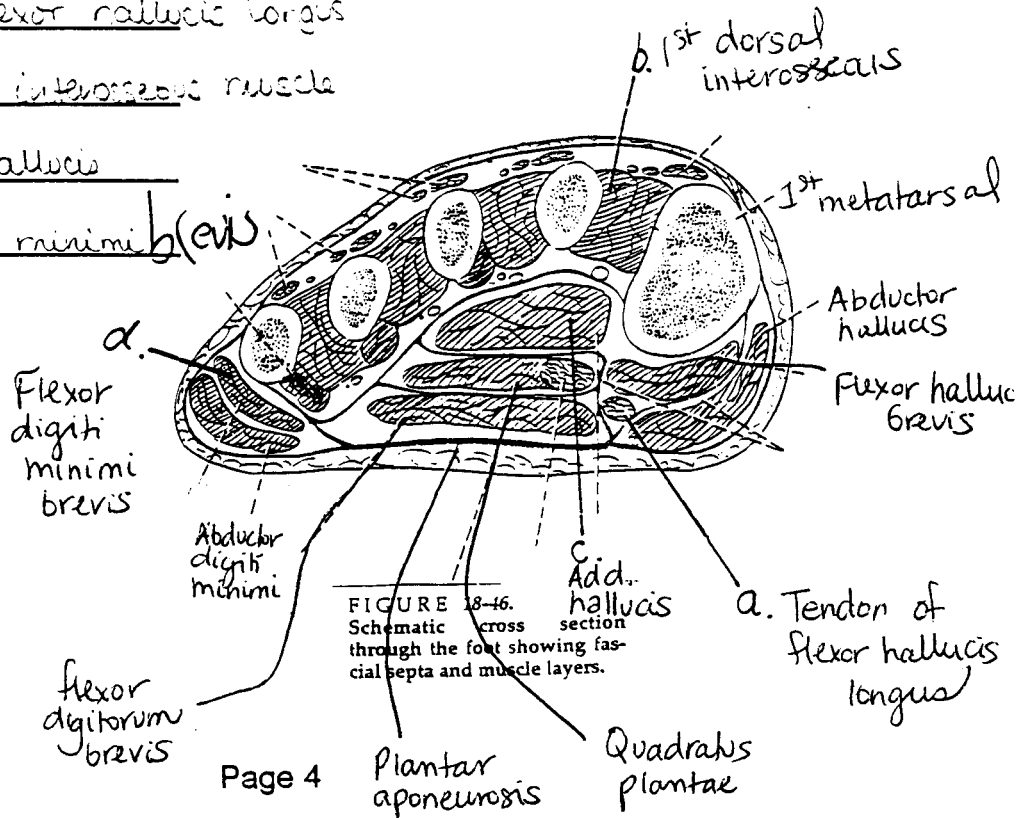 exor hallucis longus
interosseous muscle
allucis
minimi brevis
b. 1st dorsal
interosseous
1st metatarsal
Abductor
hallucis
Flexor halluc
brevis
d.
Flexor
digiti
minimi
brevis
Abductor
digiti
minimi
c.
Add.
hallucis
a. Tendon of
flexor hallucis
longus
FIGURE 18-46.
Schematic cross section
through the foot showing fas-
cial septa and muscle layers.
flexor
digitorum
brevis
Plantar
aponeurosis
Quadratus
plantae
Page 4